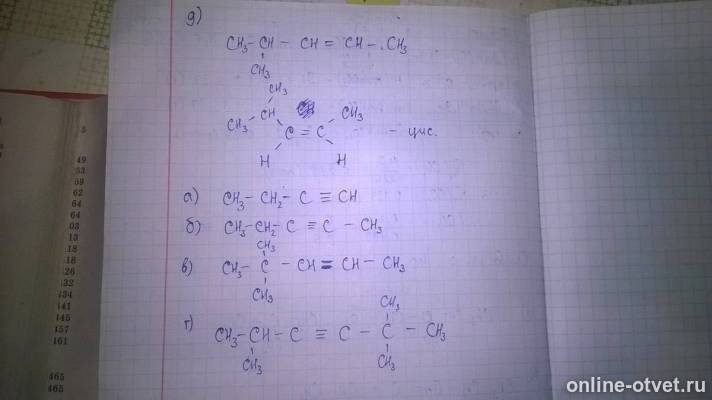 д)
CH₃ – CH – CH = CH – CH₃
CH₃
CH₃
CH₃ CH CH₃
C = C – цис.
H H
а) CH₃ – CH₂ – C ≡ CH
б) CH₃ – CH₂ – C ≡ C – CH₃
CH₃
в) CH₃ – C – CH = CH – CH₃
CH₃
CH₃
г) CH₃ – CH – C ≡ C – C – CH₃
CH₃ CH₃
5
49
53
59
62
64
64
03
13
18
18
26
32
434
441
145
157
161
465
465
online-otvet.ru